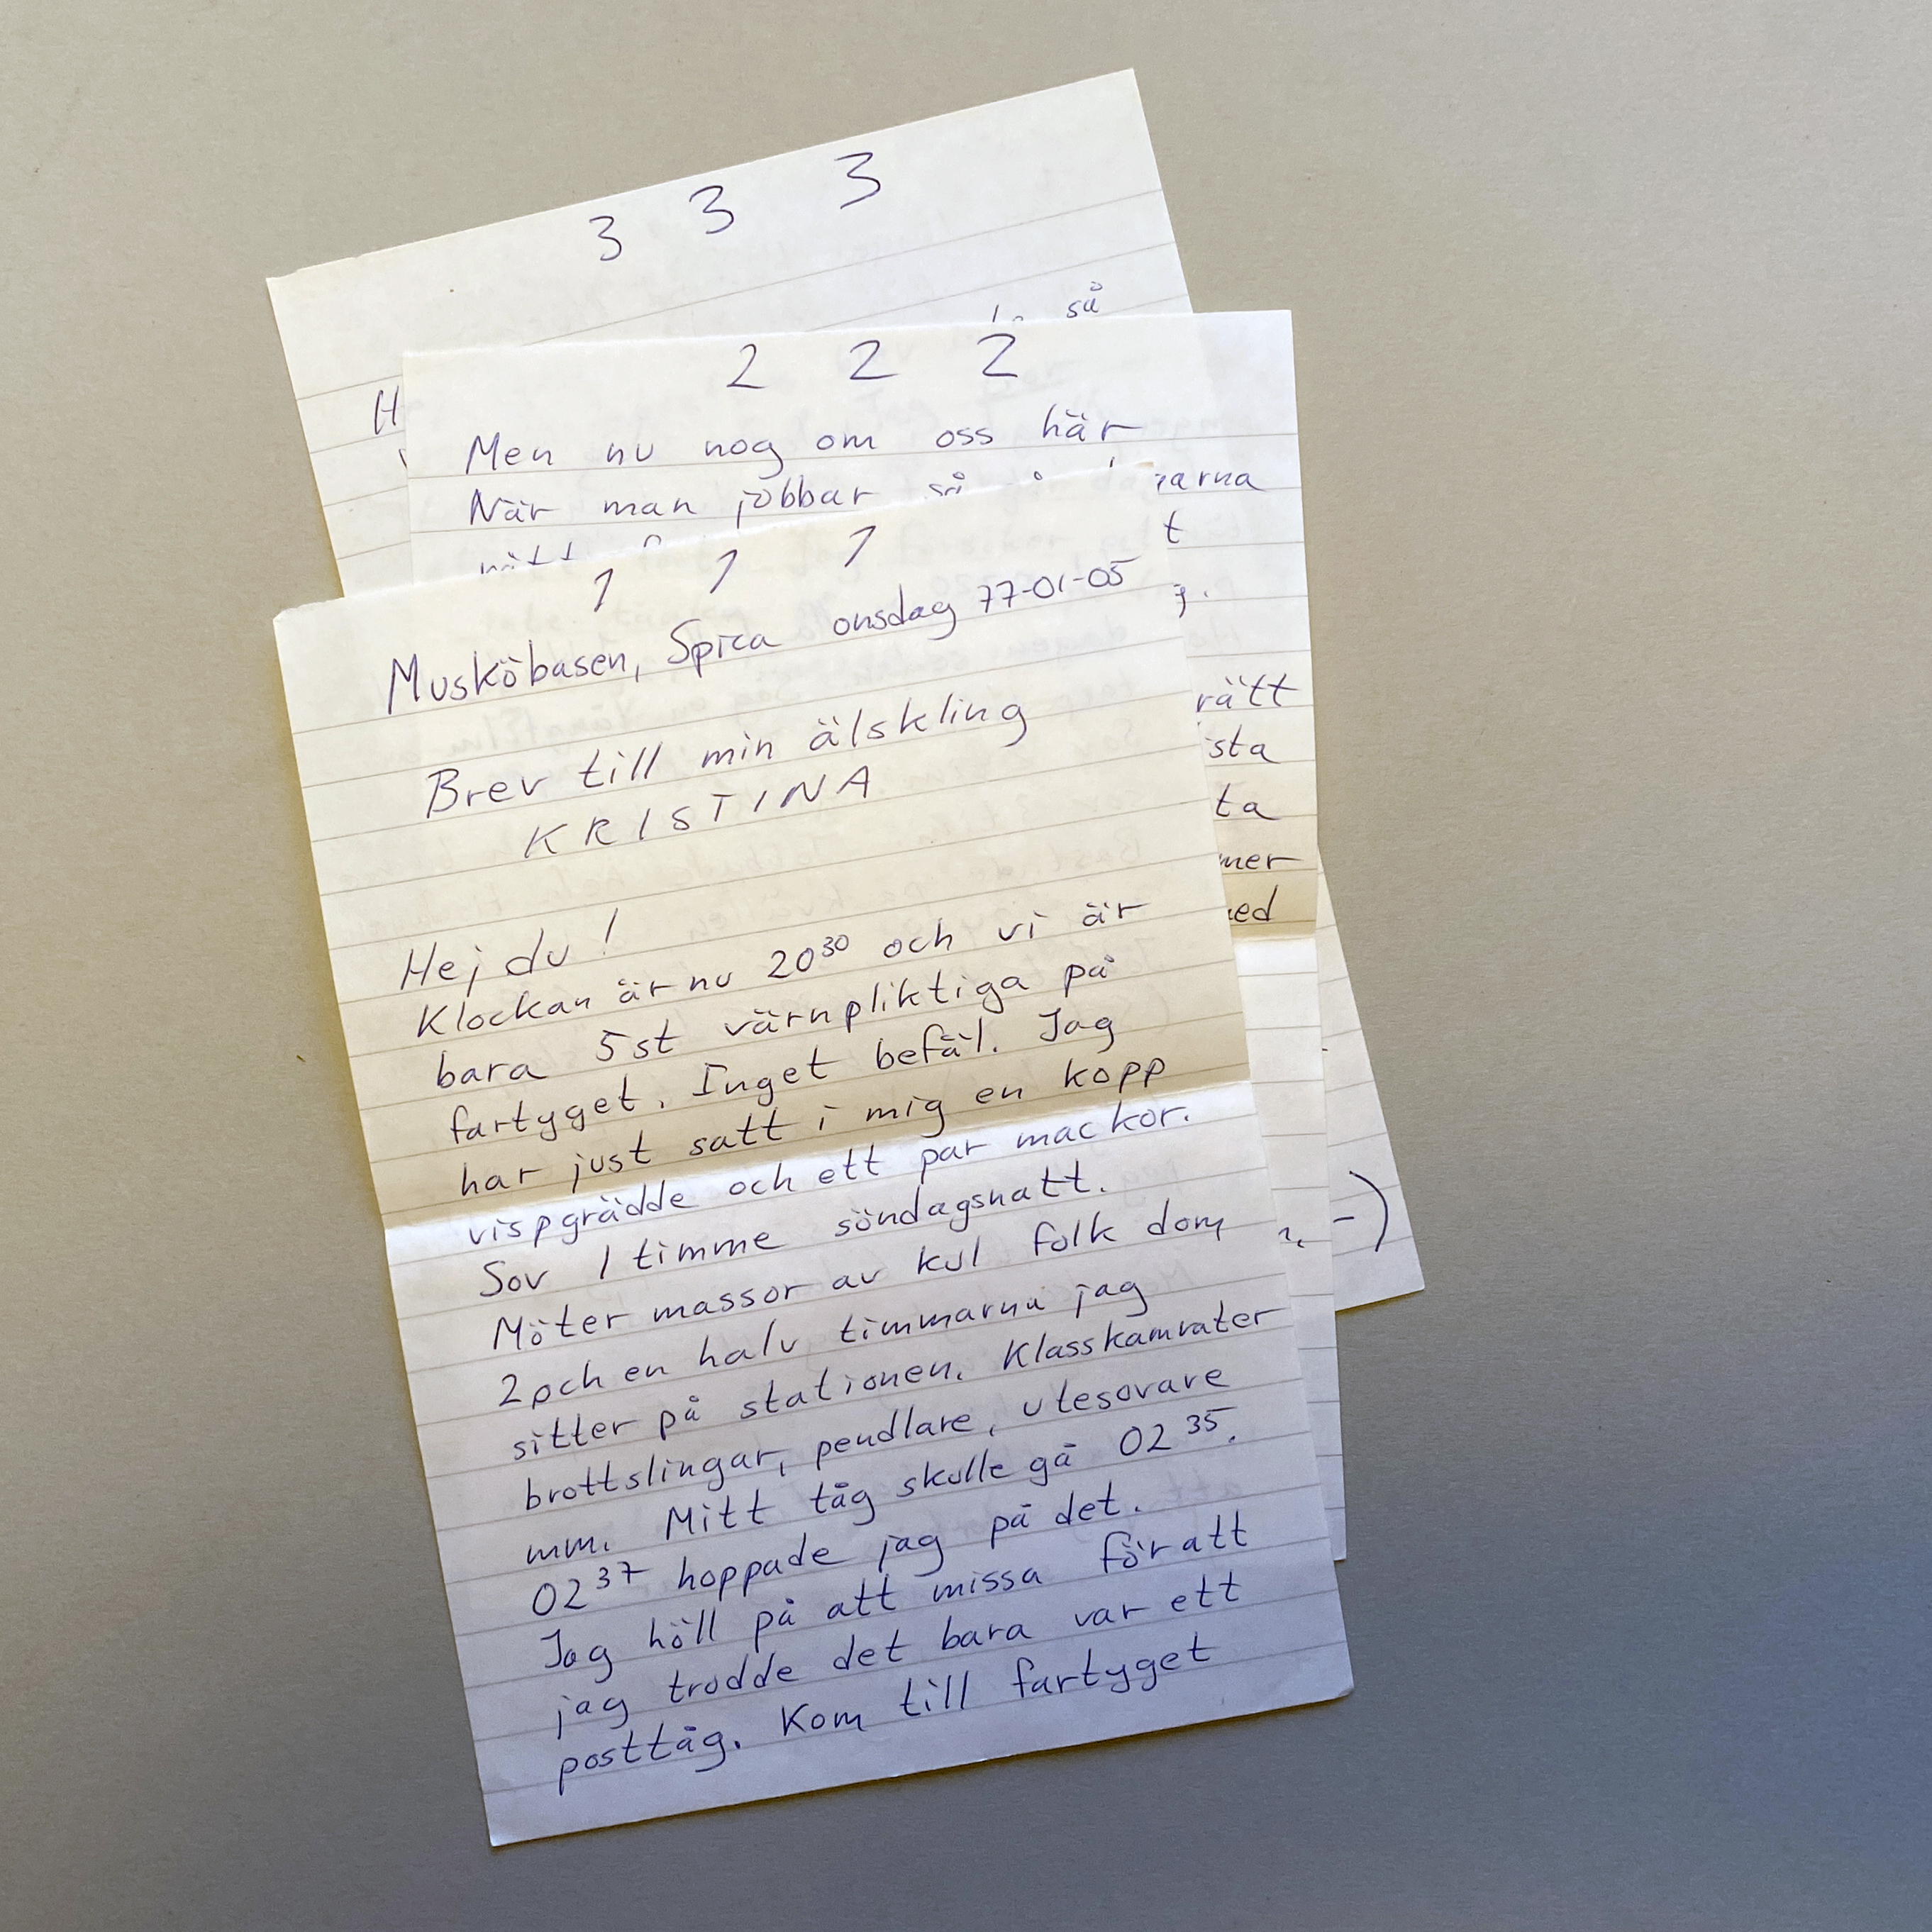 3 3 3
så
H
2 2 2
Men nu nog om oss här
När man jobbar så
arna
t
rätt
sta
ta
mer
ed
1 1 1
Musköbasen, Spica onsdag 77-01-05
Brev till min älskling
KRISTINA
Hej du!
Klockan är nu 20³⁰ och vi är
bara 5st värnpliktiga på
fartyget. Inget befäl. Jag
har just satt i mig en kopp
vispgrädde och ett par mackor.
Sov 1 timme söndagsnatt.
Möter massor av kul folk dom
2 och en halv timmarna jag
sitter på stationen. Klasskamrater
brottslingar, pendlare, utesovare
mm. Mitt tåg skulle gå 02³⁵.
02³⁷ hoppade jag på det.
Jag höll på att missa för att
jag trodde det bara var ett
posttåg. Kom till fartyget
-)